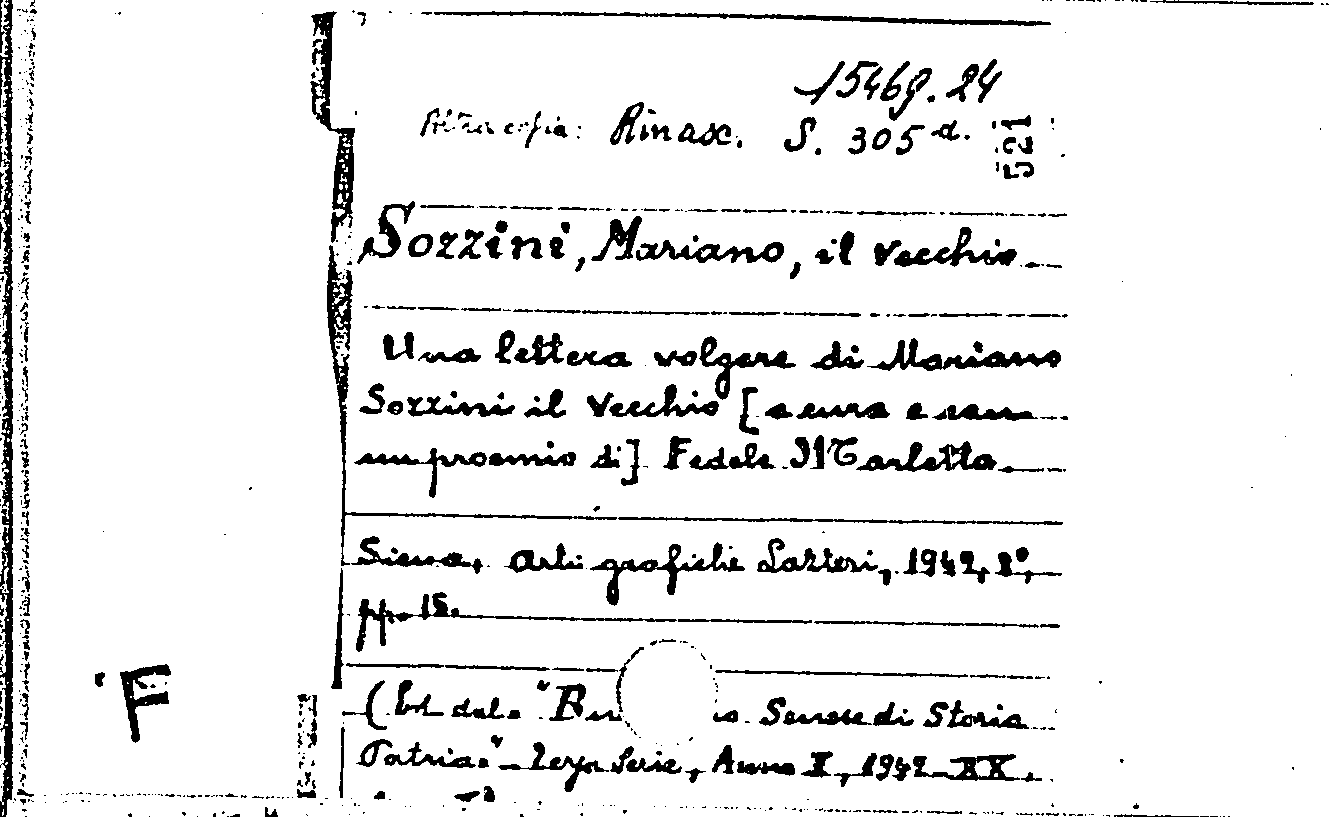 15469.24
Altra copia: Rinasc. S. 305 d.
521
Sozzini, Mariano, il Vecchio
Una lettera volgare di Mariano
Sozzini il Vecchio [a cura e con
un proemio di] Fedele Marletta.
Siena, Arti grafiche Lazzeri, 1942, 8°,
pp. 15.
F
(Est. dal "Bu o Senese di Storia
Patria" - Terza Serie, Anno I, 1942-XX,